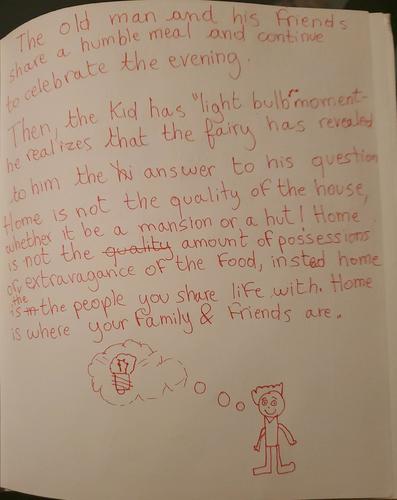 The old man and his friends
share a humble meal and continue
to celebrate the evening.
Then, the Kid has "light bulb" moment-
he realizes that the fairy has revealed
to him the answer to his question
Home is not the quality of the house,
whether it be a mansion or a hut! Home
is not the quality amount of possessions
or extravagance of the food, insted home
is the people you share life with. Home
is where your Family & Friends are.